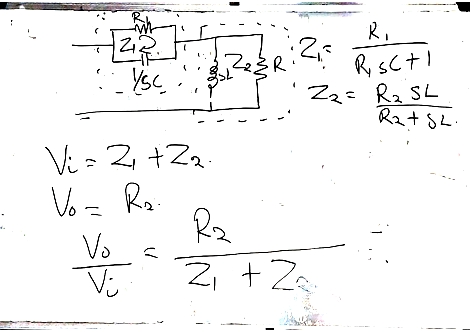 R₁
Z₁
1/SC
SL
Z₂
R
Z₁ = R₁ / R₁SC+1
Z₂ = R₂ SL / R₂ + SL.
Vi = Z₁ + Z₂.
Vo = R₂.
Vo / Vi = R₂ / Z₁ + Z₂